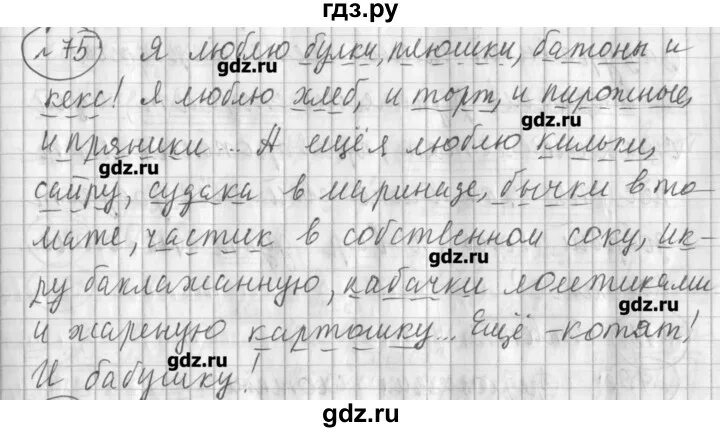 гдз.ру
№ 75 Я люблю булки, плюшки, батоны и
gdz.ru
кекс! Я люблю хлеб, и торт, и пирожные,
gdz.ru
и пряники... А ещё я люблю кильки,
gdz.ru
сайру, судака в маринаде, бычки в то-
мате, частик в собственном соку, ик-
gdz.ru
ру баклажанную, кабачки ломтиками
gdz.ru
и жареную картошку... Ещё - котят!
gdz.ru
И бабушку!
gdz.ru